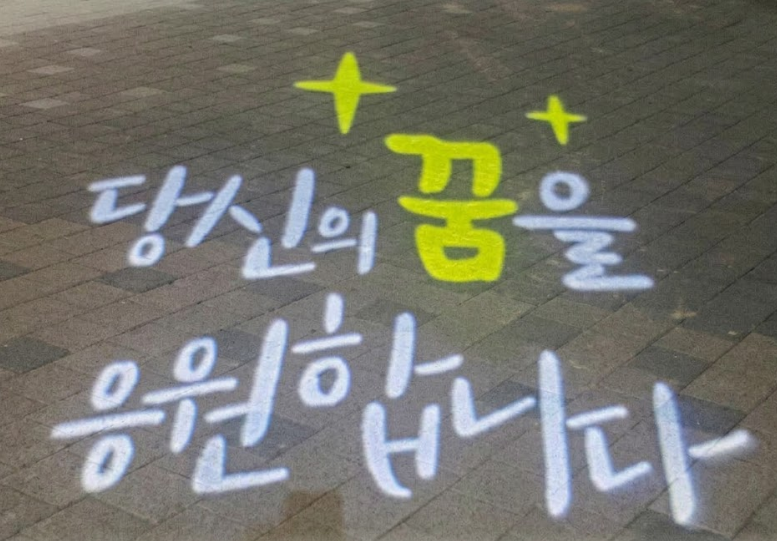 당신의 꿈을
응원합니다